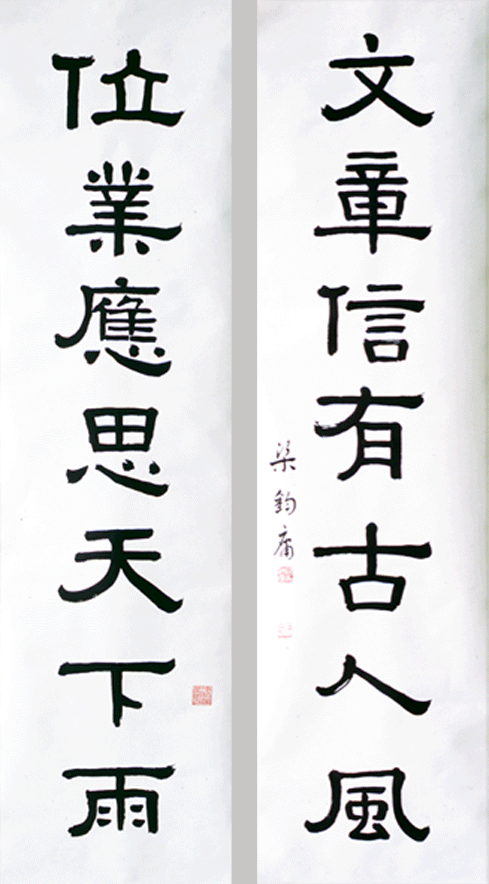 文章信有古人風
梁鈞庸
位業應思天下雨